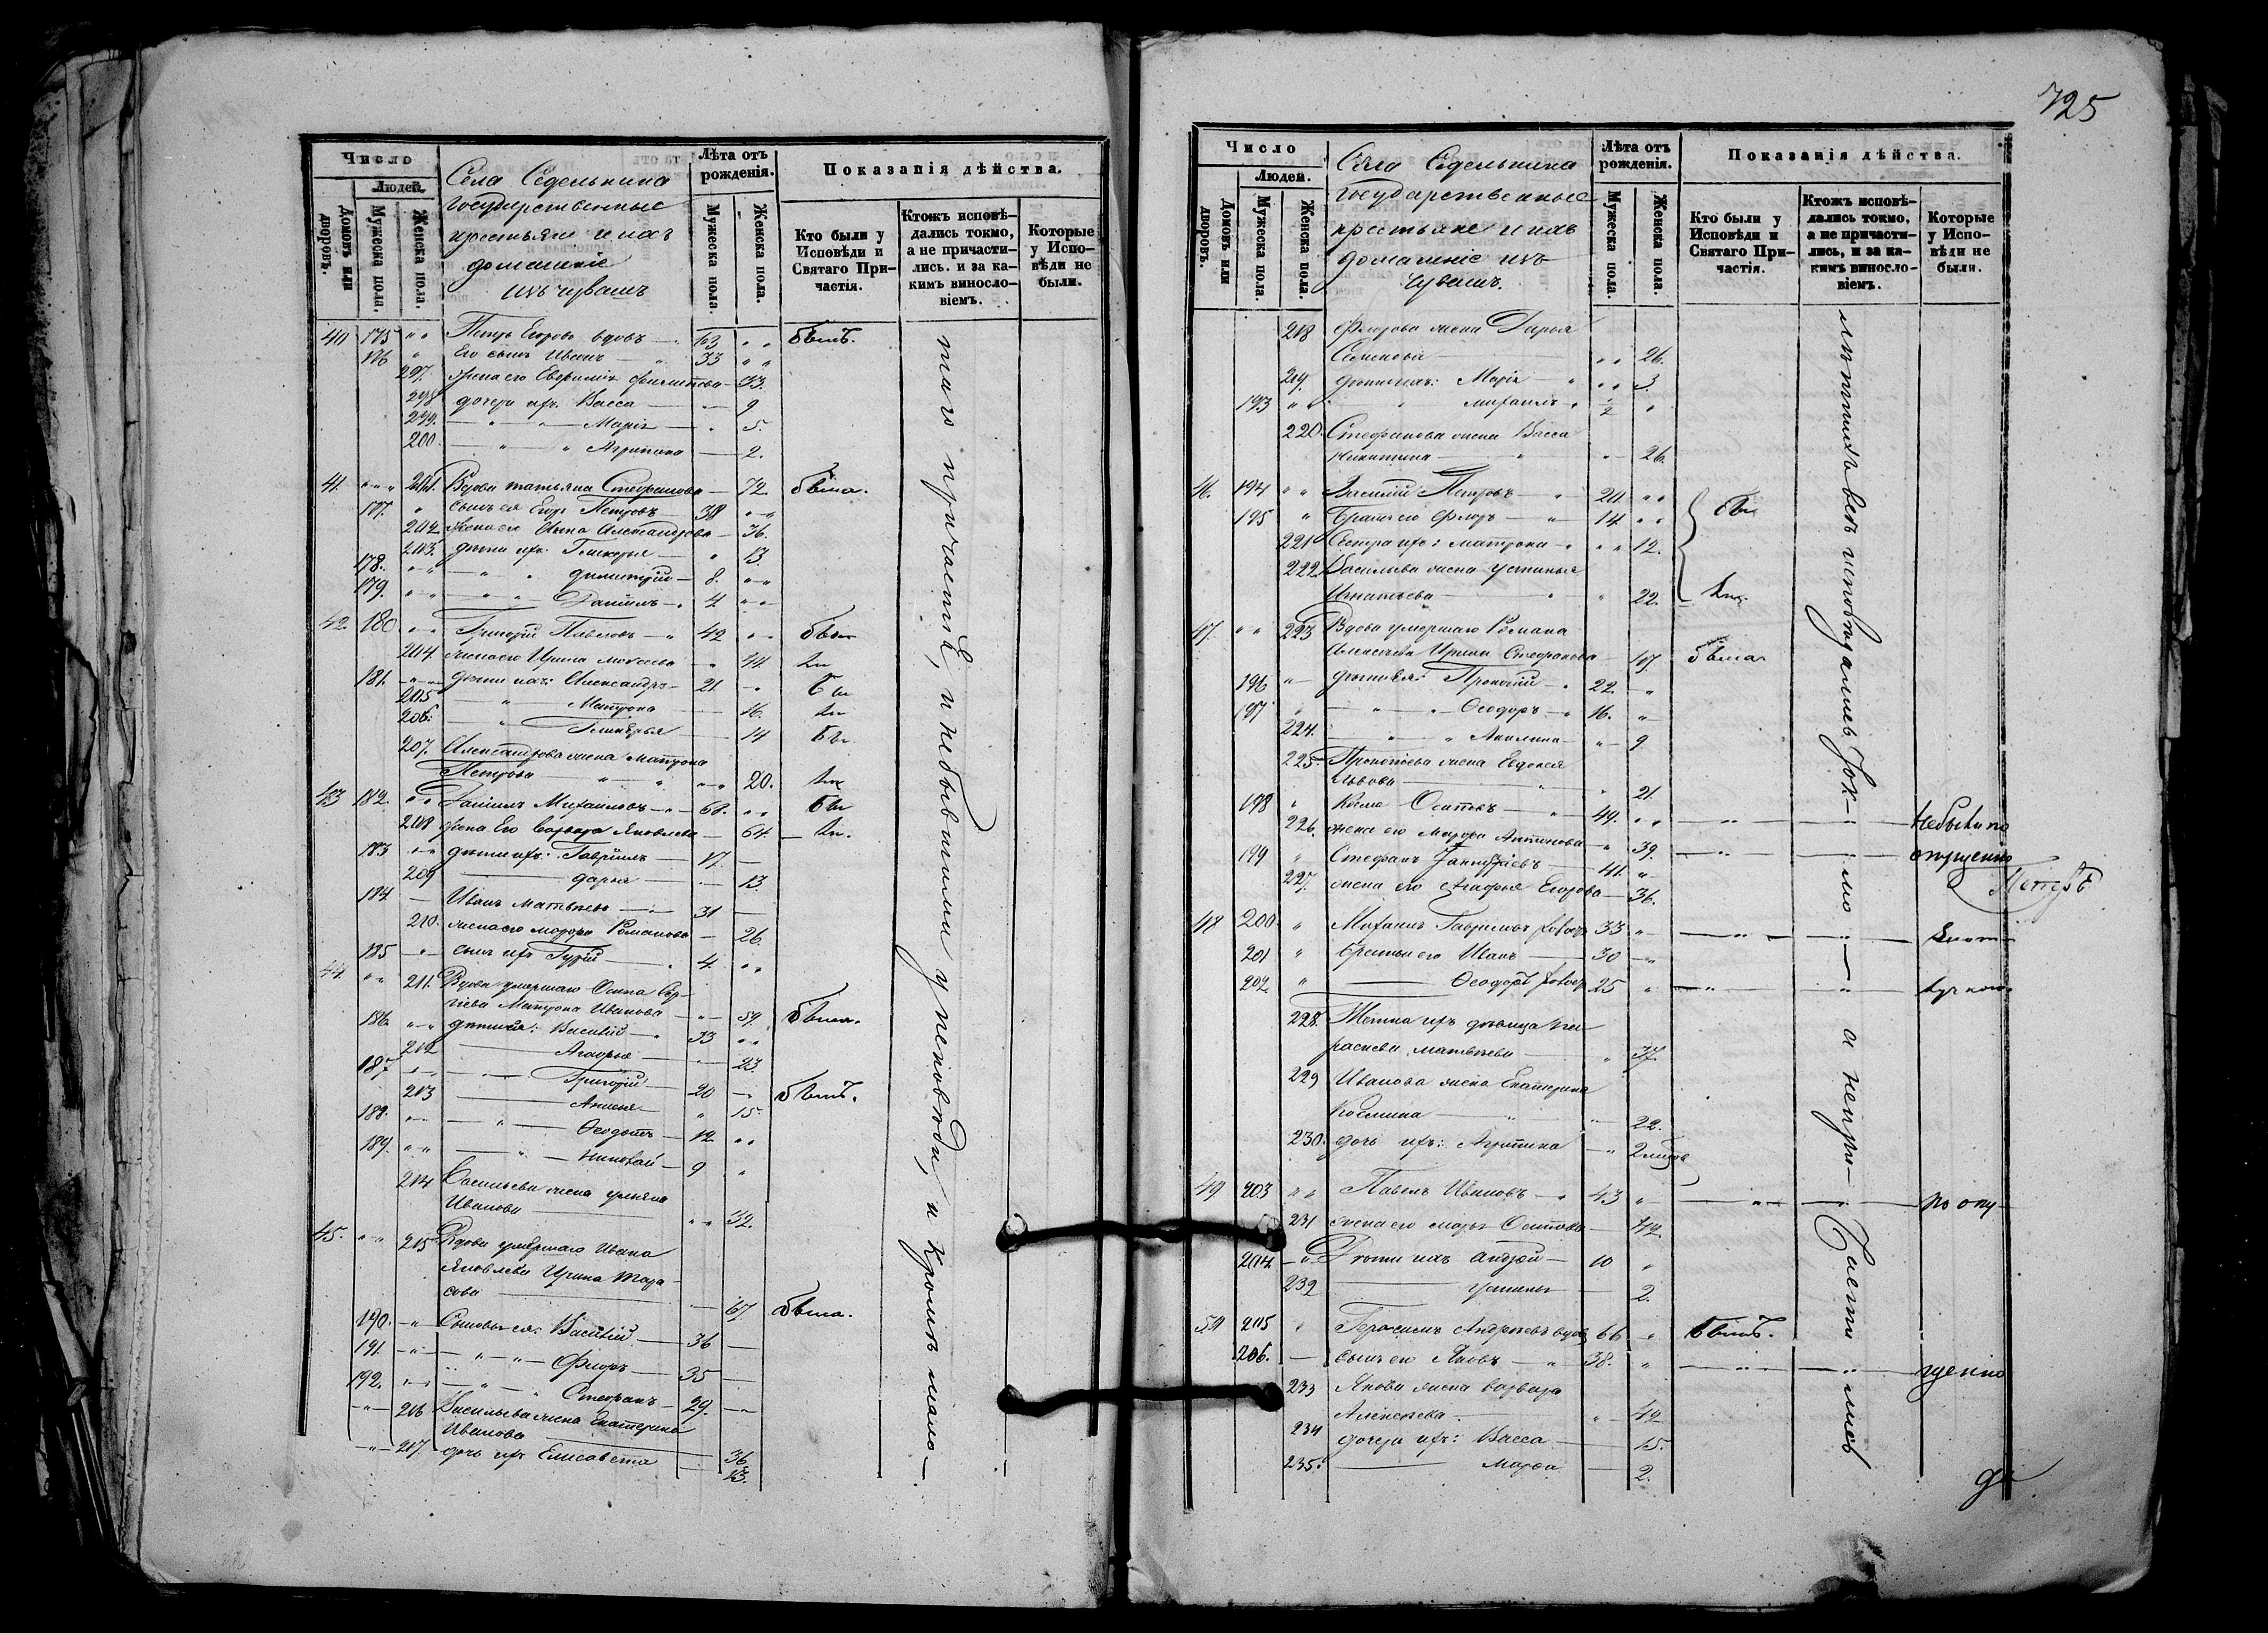 Число
Людей.
Домовъ или дворовъ.
Мужеска пола.
Женска пола.
Села Седелькина
государственные
крестьяне и ихъ
домашніе
изъ чувашъ
Лѣта отъ рожденія.
Мужеска пола.
Женска пола.
Показанія дѣйства.
Кто были у Исповѣди и Святаго Причастія.
Ктожъ исповѣдались токмо, а не причастились. и за какимъ винословіемъ.
Которые у Исповѣди не были.
40 175 " " Петръ Егоровъ вдовъ — 63 " " былъ.
176 " Его сынъ Иванъ — 33 " "
197. Жена его Евфимія Филипова — 33.
198 дочери ихъ Васса — 9
199. — " — Марія — 5.
200. — " Агрипина — 2.
41. " " 201. Вдова Татьяна Стефанова — 72. была.
177. " Сынъ ея Егоръ Петровъ 38 " "
202 Жена его Анна Александрова — 36.
203. дѣти ихъ: Гликерья — " 13.
178. " " — " " Димитрій — 8. " "
179. " " — " " Даніилъ — 4 " "
42. 180 " " Григорій Павловъ — " 42 " "
204. жена его Ирина Моисеева — " 44
181. — дѣти ихъ: Александръ — 21. — "
205 — " Матрона — 16.
206. — " Гликерья — 14
207. Александрова жена Матрона
Петрова — " — " " 20.
43 182. " " Даніилъ Михаиловъ — " 60. " "
208 жена Его Варвара Яковлева — 64.
183 " " дѣти ихъ: Гавріилъ — 17. —
209 — Дарья — 13
184 — Иванъ Матвѣевъ — 31 —
210. жена его Марфа Романова — 26.
185 — " сынъ ихъ Гурій — 4. " "
44. " " 211. Вдова умершаго Осипа Сер-
гѣева Матрона Иванова — " 59. была.
186. " " дѣти ея: Василій — " 33 " "
212 — Агафья — 23.
187 — Григорій — 20 — былъ.
213 — Аксинья — " 15.
188. — " — Ѳеодотъ — 12. " "
189. " " — " — Николай — 9 "
214 Васильева жена Ульяна
Иванова — " " 32.
45. " " 215 Вдова умершаго Ивана
Яковлева Ирина Тара-
сова — 67. была.
190. — " Сыновья ея: Василій — 36 —
191. — " — " — " — Флоръ — 35 —
192. " " — " — " Стефанъ — 29. — "
— " — 216 Васильева жена Екатерина
Иванова — 36
— " — 217. дочь ихъ Елисавета — 13.
таго причастія, и не бывшими у исповѣди, и кромѣ мало—
725
Число
Людей.
Домовъ или дворовъ.
Мужеска пола.
Женска пола.
Села Седелькина
государственные
крестьяне и ихъ
домашніе изъ
чувашъ.
Лѣта отъ рожденія.
Мужеска пола.
Женска пола.
Показанія дѣйства.
Кто были у Исповѣди и Святаго Причастія.
Ктожъ исповѣдались токмо, а не причастились, и за какимъ винословіемъ.
Которые у Исповѣди не были.
218 Флорова жена Дарья
Семенова " " 26.
219. дѣти ихъ: Марія — " " " 3.
193 " " " Михаилъ " 1/2 "
220. Стефанова жена Васса
Никитина — " " 26.
46. 194 " " Василій Петровъ — " 20. " "
195 " Братъ его Флоръ — " 14 " "
221 Сестра ихъ: Матрона — " " " 12.
222. Васильева жена Устинья
Игнатьева — " " 22.
47. " " 223 Вдова умершаго Романа
Алексѣева Ирина Стефанова — была
196 " — дѣти ея: Прокопій — " 22. — "
197 " — " — " Ѳеодоръ — " 16. "
224. — " " Акилина — " 9
225. Прокопьева жена Евдокія
Львова — " " 21.
198 " Косма Осиповъ — " 49. " " — " — " — не были по
226. жена его Марфа Антипова — " 39.
199 " Стефанъ — 41. " опущенію
227. жена его Агафья Егорова — 36.
48 200 " Михаилъ Гавриловъ 33 " — " — " —
201 " братья его Иванъ — 30 — "
202 " — Ѳеодоръ 25 " — " — " —
228. Тетка ихъ дѣвица
Матвѣева — " 37.
229 Иванова жена Екатерина
Космина — " — 22.
230. дочь ихъ: Агрипина — "
49 203 " " Павелъ Ивановъ — " 43 " — " — " — по опу-
231 жена его Марья Осипова — 42.
204 — " Дѣти ихъ Андрей — 10 "
232 — Устинья — 2.
50 205 " Герасимъ Андреевъ вдовъ 66 " былъ.
206. — сынъ его Яковъ — " 38. " — " — " — щенію
233 Якова жена Варвара
Алексѣева — " 40
234 дочери ихъ: Васса — 15.
235. — Марфа — 2.
лѣтнихъ всѣ исповѣдались ток— " —мо — " — а непри— " —частились